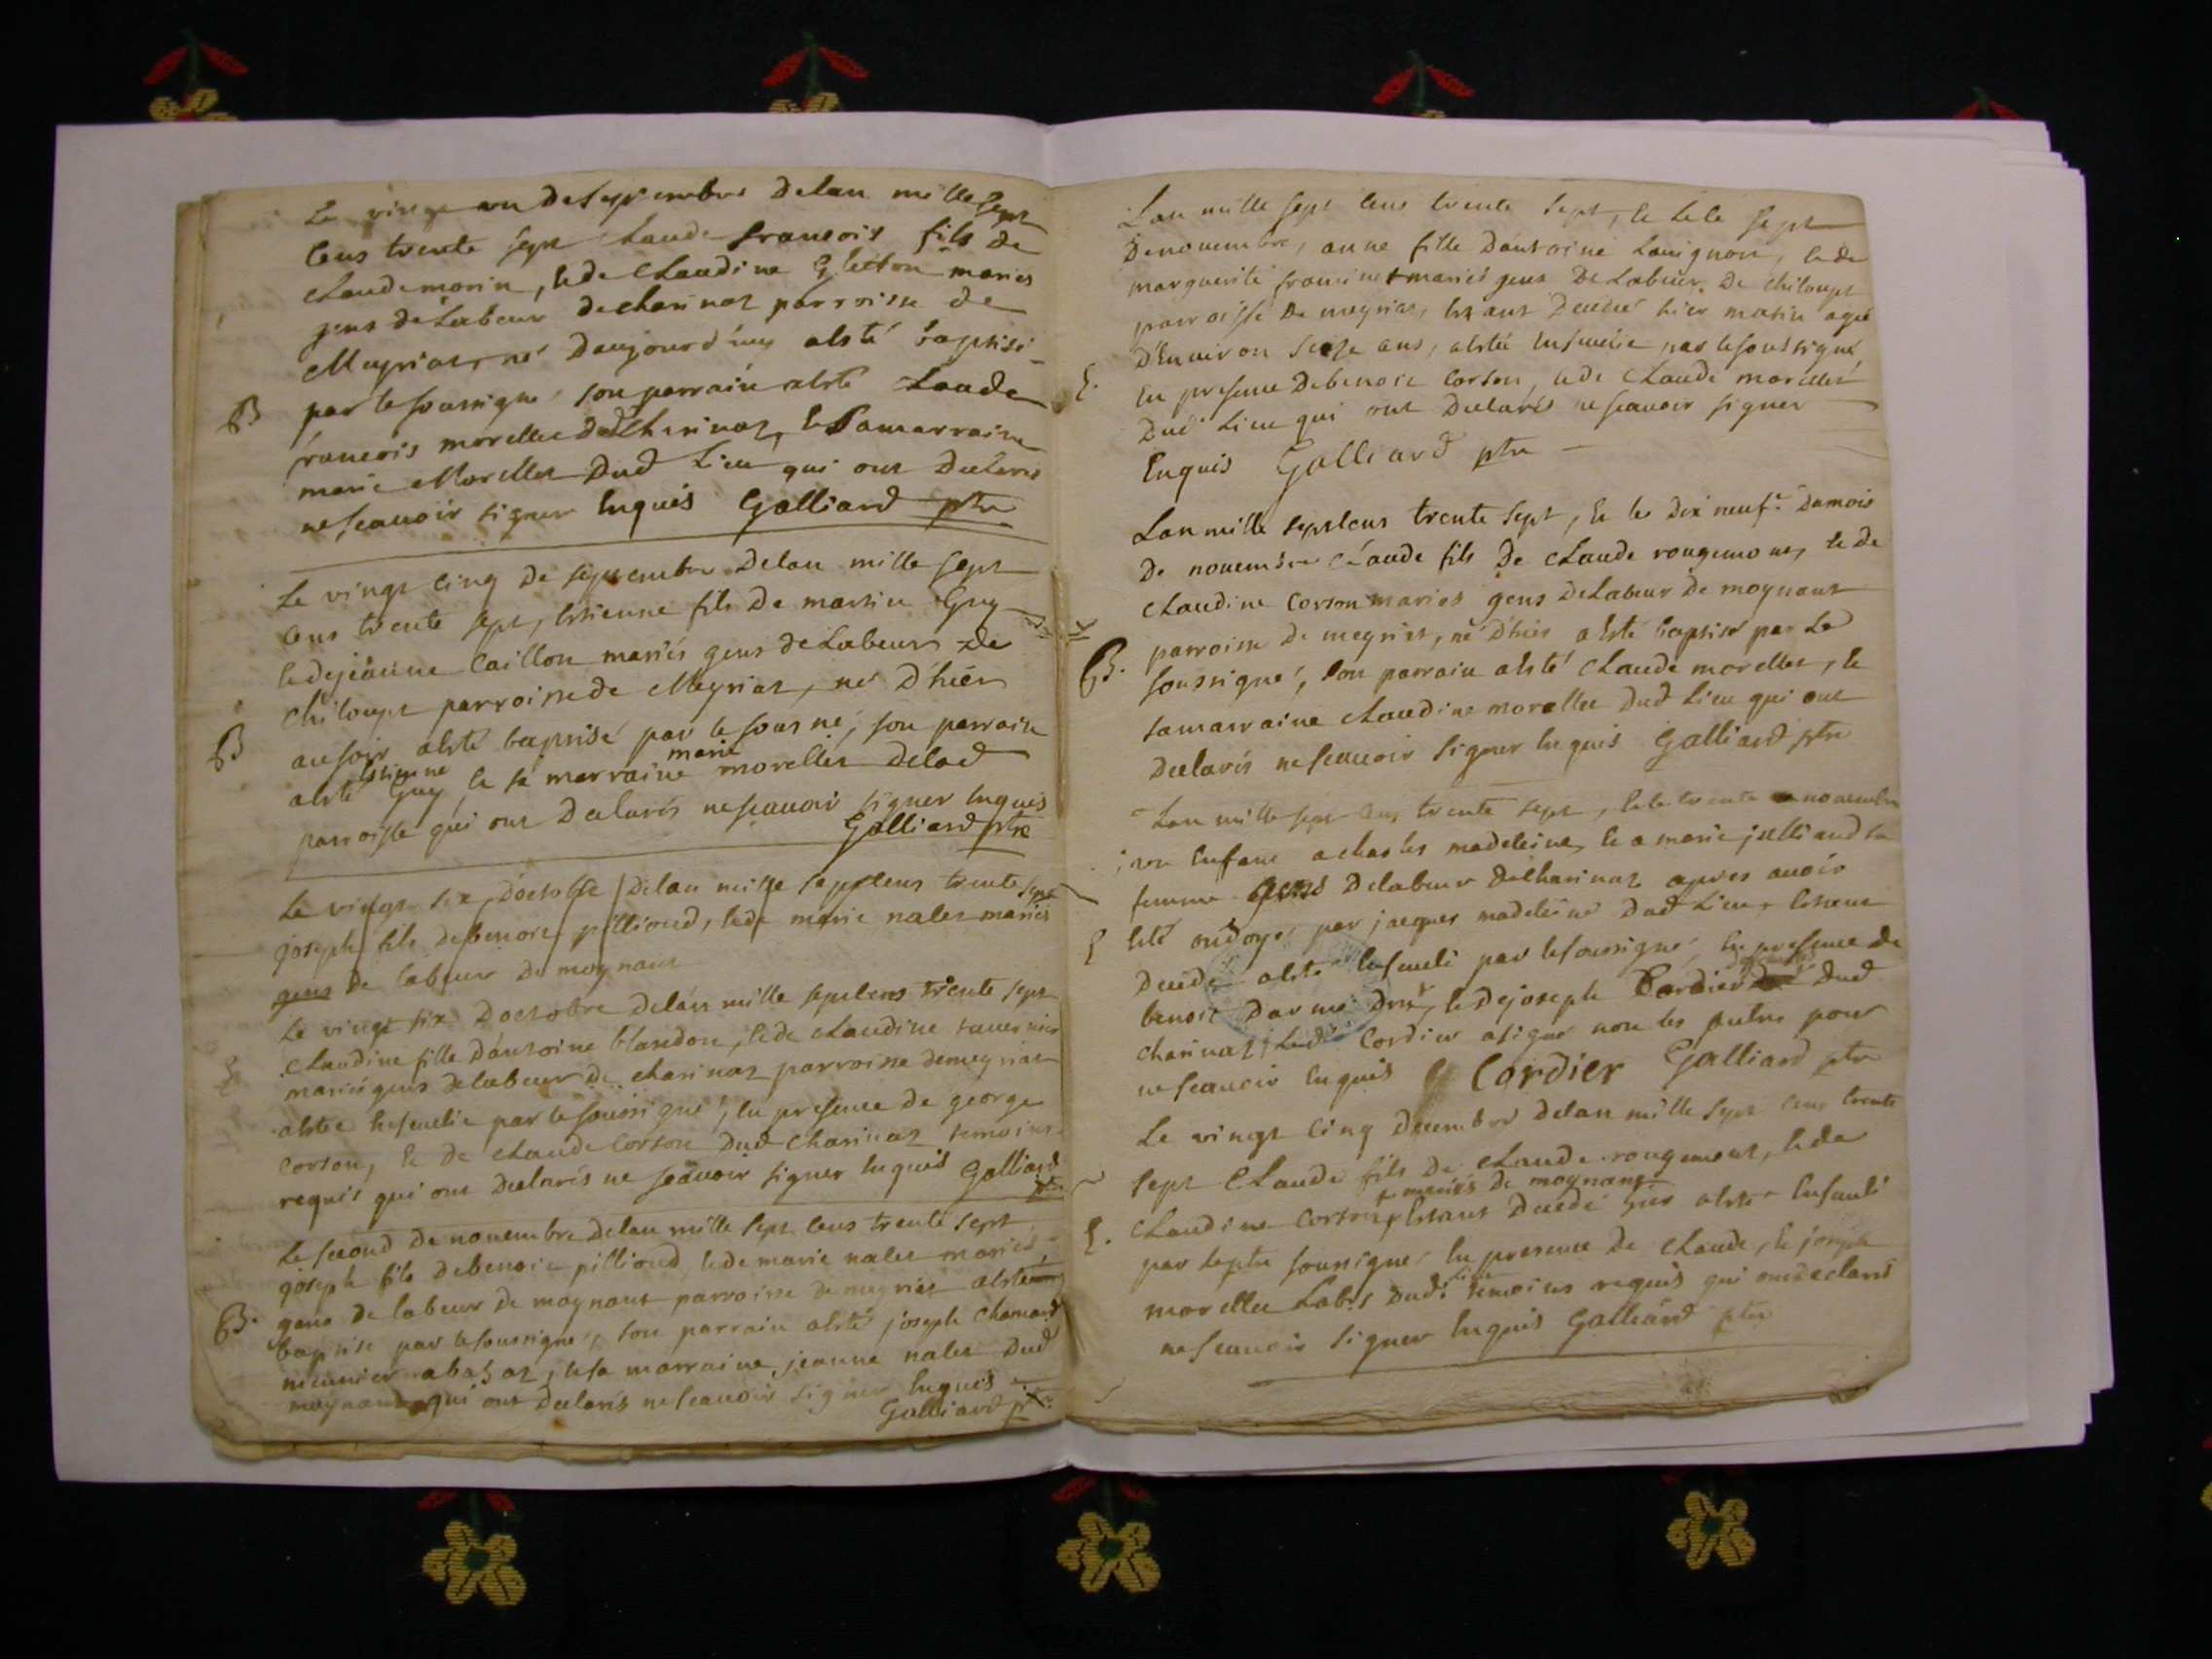 Le vingt un de septembre de lan mille sept
cens trente sept Claude francois fils de
Claude morin, et de Claudine Gletton mariés
gens de Labeur de charinaz parroisse de
Meyriat, né daujourd'huy at esté baptisé
B par le soussigné son parrain at esté Claude
francois morellet de Charinaz, et sa marraine
marie Morellet dud Lieu qui ont declarés
ne scavoir signer enquis Galliard ptre
Le vingt cinq de septembre de lan mille sept
cens trente sept, estienne fils de martin Guy
et de jeanne Caillon mariés gens de Labeur de
chiloupt parroisse de Meyriat, né d'hier
B au soir at esté baptisé par le sousné, son parrain
at esté estienne Guy, et sa marraine marie morellet de lad
parroisse qui ont declarés ne scavoir signer enquis
Galliard ptre
Le vingt six d'octobre de lan mille sept cens trente sept
joseph fils de benoit pillioud, et de marie nalet mariés
gens de labeur de moynant
Le vingt six d'octobre de lan mille sept cens trente sept
E Claudine fille d'antoine blandon, et de claudine tavernier
mariés gens de labeur de charinaz parroisse de meyriat
at esté ensevelie par le soussigné, en presence de george
corton, et de claude Corton dud charinaz temoins
requis qui ont declarés ne scavoir signer enquis Galliard
ptre
Le second de novembre de lan mille sept cens trente sept
joseph fils de benoit pillioud, et de marie nalet mariés
B. gens de labeur de moynant parroisse de meyriat at esté
baptisé par le soussigné, son parrain at esté joseph Chanard
meunier a bahaz, et sa marraine jeanne nalet dud
moynant qui ont declarés ne scavoir signer enquis
Galliard ptre
Lan mille sept cens trente sept, et le sept
de novembre, anne fille d'antoine Lavignon, et de
marguerite francinet mariés gens de Labeur de chiloupt
parroisse de meyriat, estant decedeé hier matin ageé
d'environ seize ans, at esteé ensevelie par le soussigné,
E. en presence de benoit Corton, et de Claude morellet
dud Lieu qui ont declarés ne scavoir signer
Enquis Galliard ptre
Lan mille sept cens trente sept, et le dix neuf.e du mois
de novembre Claude fils de Claude rougemont, et de
Claudine Corton mariés gens de Labeur de moynant
B. parroisse de meyriat, né d'hier at esté baptisé par Le
soussigné, son parrain at esté Claude morellet, et
sa marraine Claudine morellet dud Lieu qui ont
declarés ne scavoir signer enquis Galliard ptre
Lan mille sept cens trente sept, et le trente novembre
un enfant a charles madeleine, et a marie jullliand sa
femme gens de labeur de charinaz apres avoir
E esté ondoyé par jacques madeleine dud Lieu, estant
decedé at esté enseveli par le soussigné, en presence de
benoit et de joseph Cordier dud
charinaz, Led Cordier a signé non les autre pour
ne scavoir enquis Cordier Galliard ptre
Le vingt cinq decembre de lan mille sept cens trente
sept Claude fils de Claude rougemont, et de
mariés de moynant
E. Claudine Corton estant decedé hier at esté enseveli
par le ptre soussigné en presence de Claude, et joseph
morellet dud. Lieu temoins requis qui ont declarés
ne scavoir signer enquis Galliard ptre